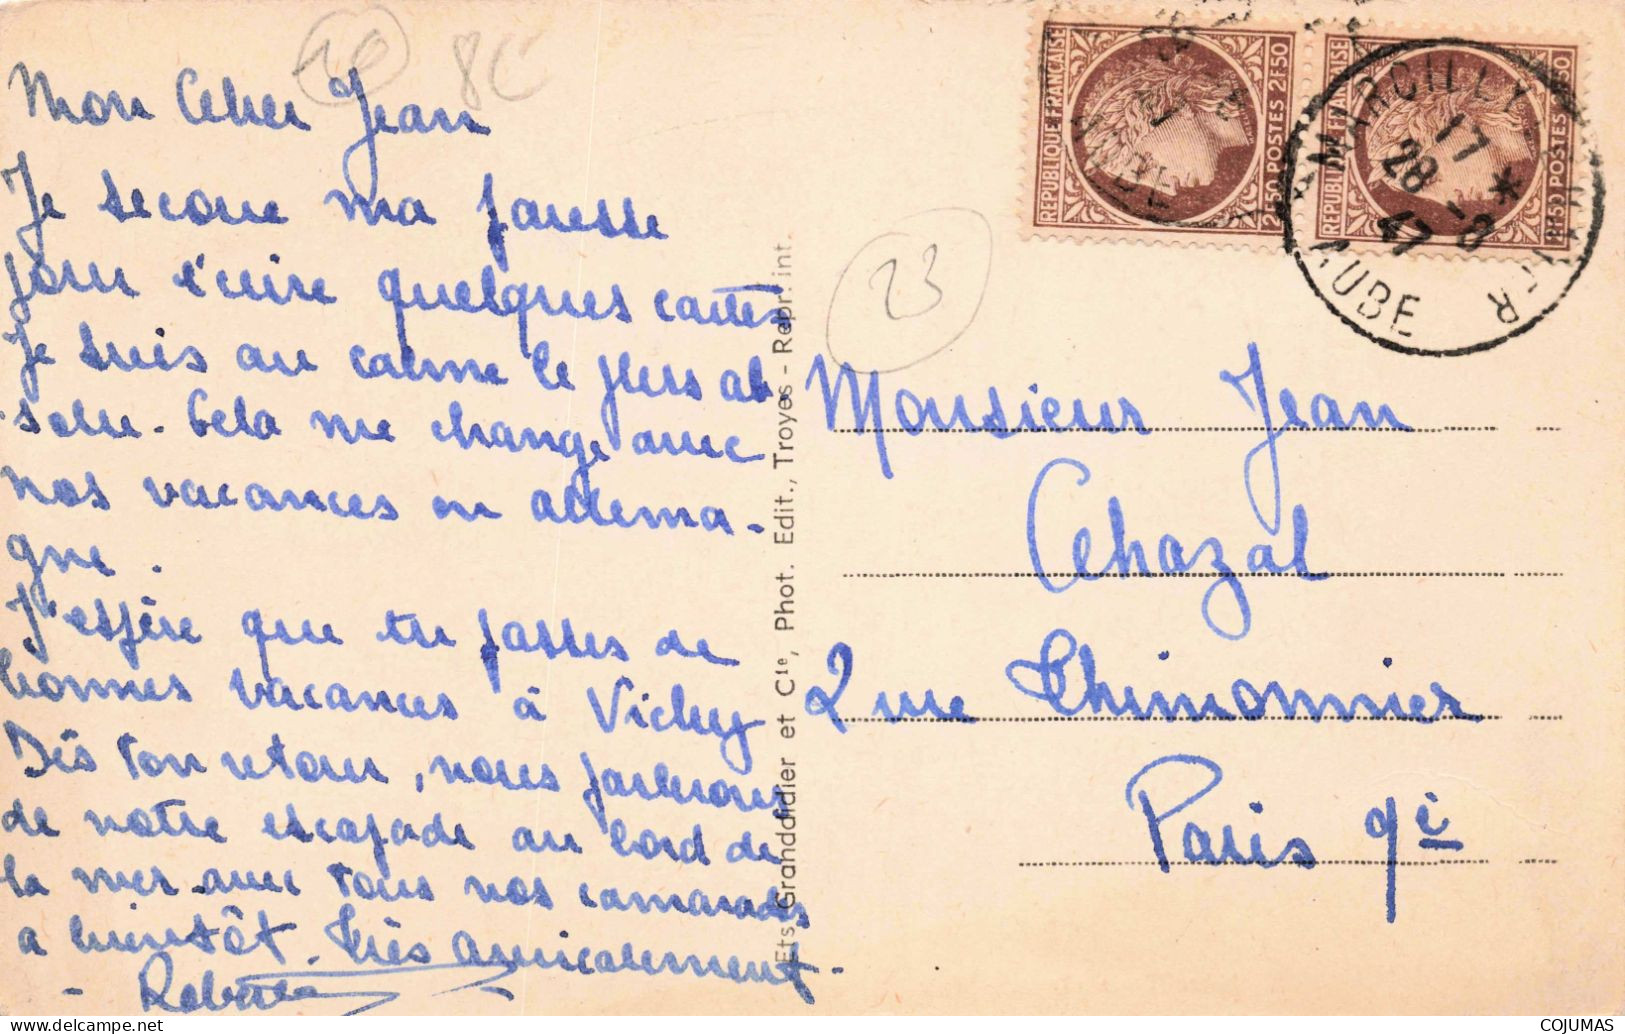 20
8C
23
Mon Cher Jean
Je secoue ma paresse
pour t'écrire quelques cartes
Je suis au calme le plus ab
solu - Cela me change avec
nos vacances en Allema-
gne.
J'espère que tu passes de
bonnes vacances à Vichy
Dès ton retour, nous parlerons
de notre escapade au bord de
la mer avec tous nos camarades
a bientôt. Très Amicalement -
Ets Granddidier et Cie, Phot. Edit., Troyes - Repr. int.
REPUBLIQUE FRANÇAISE
2F50 POSTES 2F50
REPUBLIQUE FRANÇAISE
2F50 POSTES 2F50
MARCILLY LE HAYER
17 *
28 - 8
47
AUBE
Monsieur Jean
Chazal
2 rue Thimonnier
Paris 9è
COJUMAS